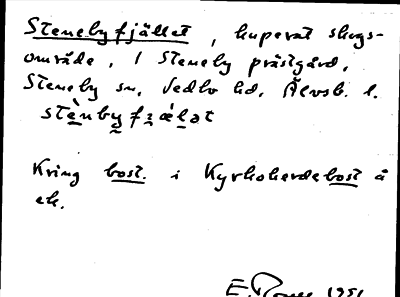 Stenebyfjället, kuperat skogs-
område, 1 Steneby prästgård,
Steneby sn, Vedbo hd, Älvsb. l.
stènbyfzǽlət
Kring bost. i Kyrkoherdebost å
ek.
1951